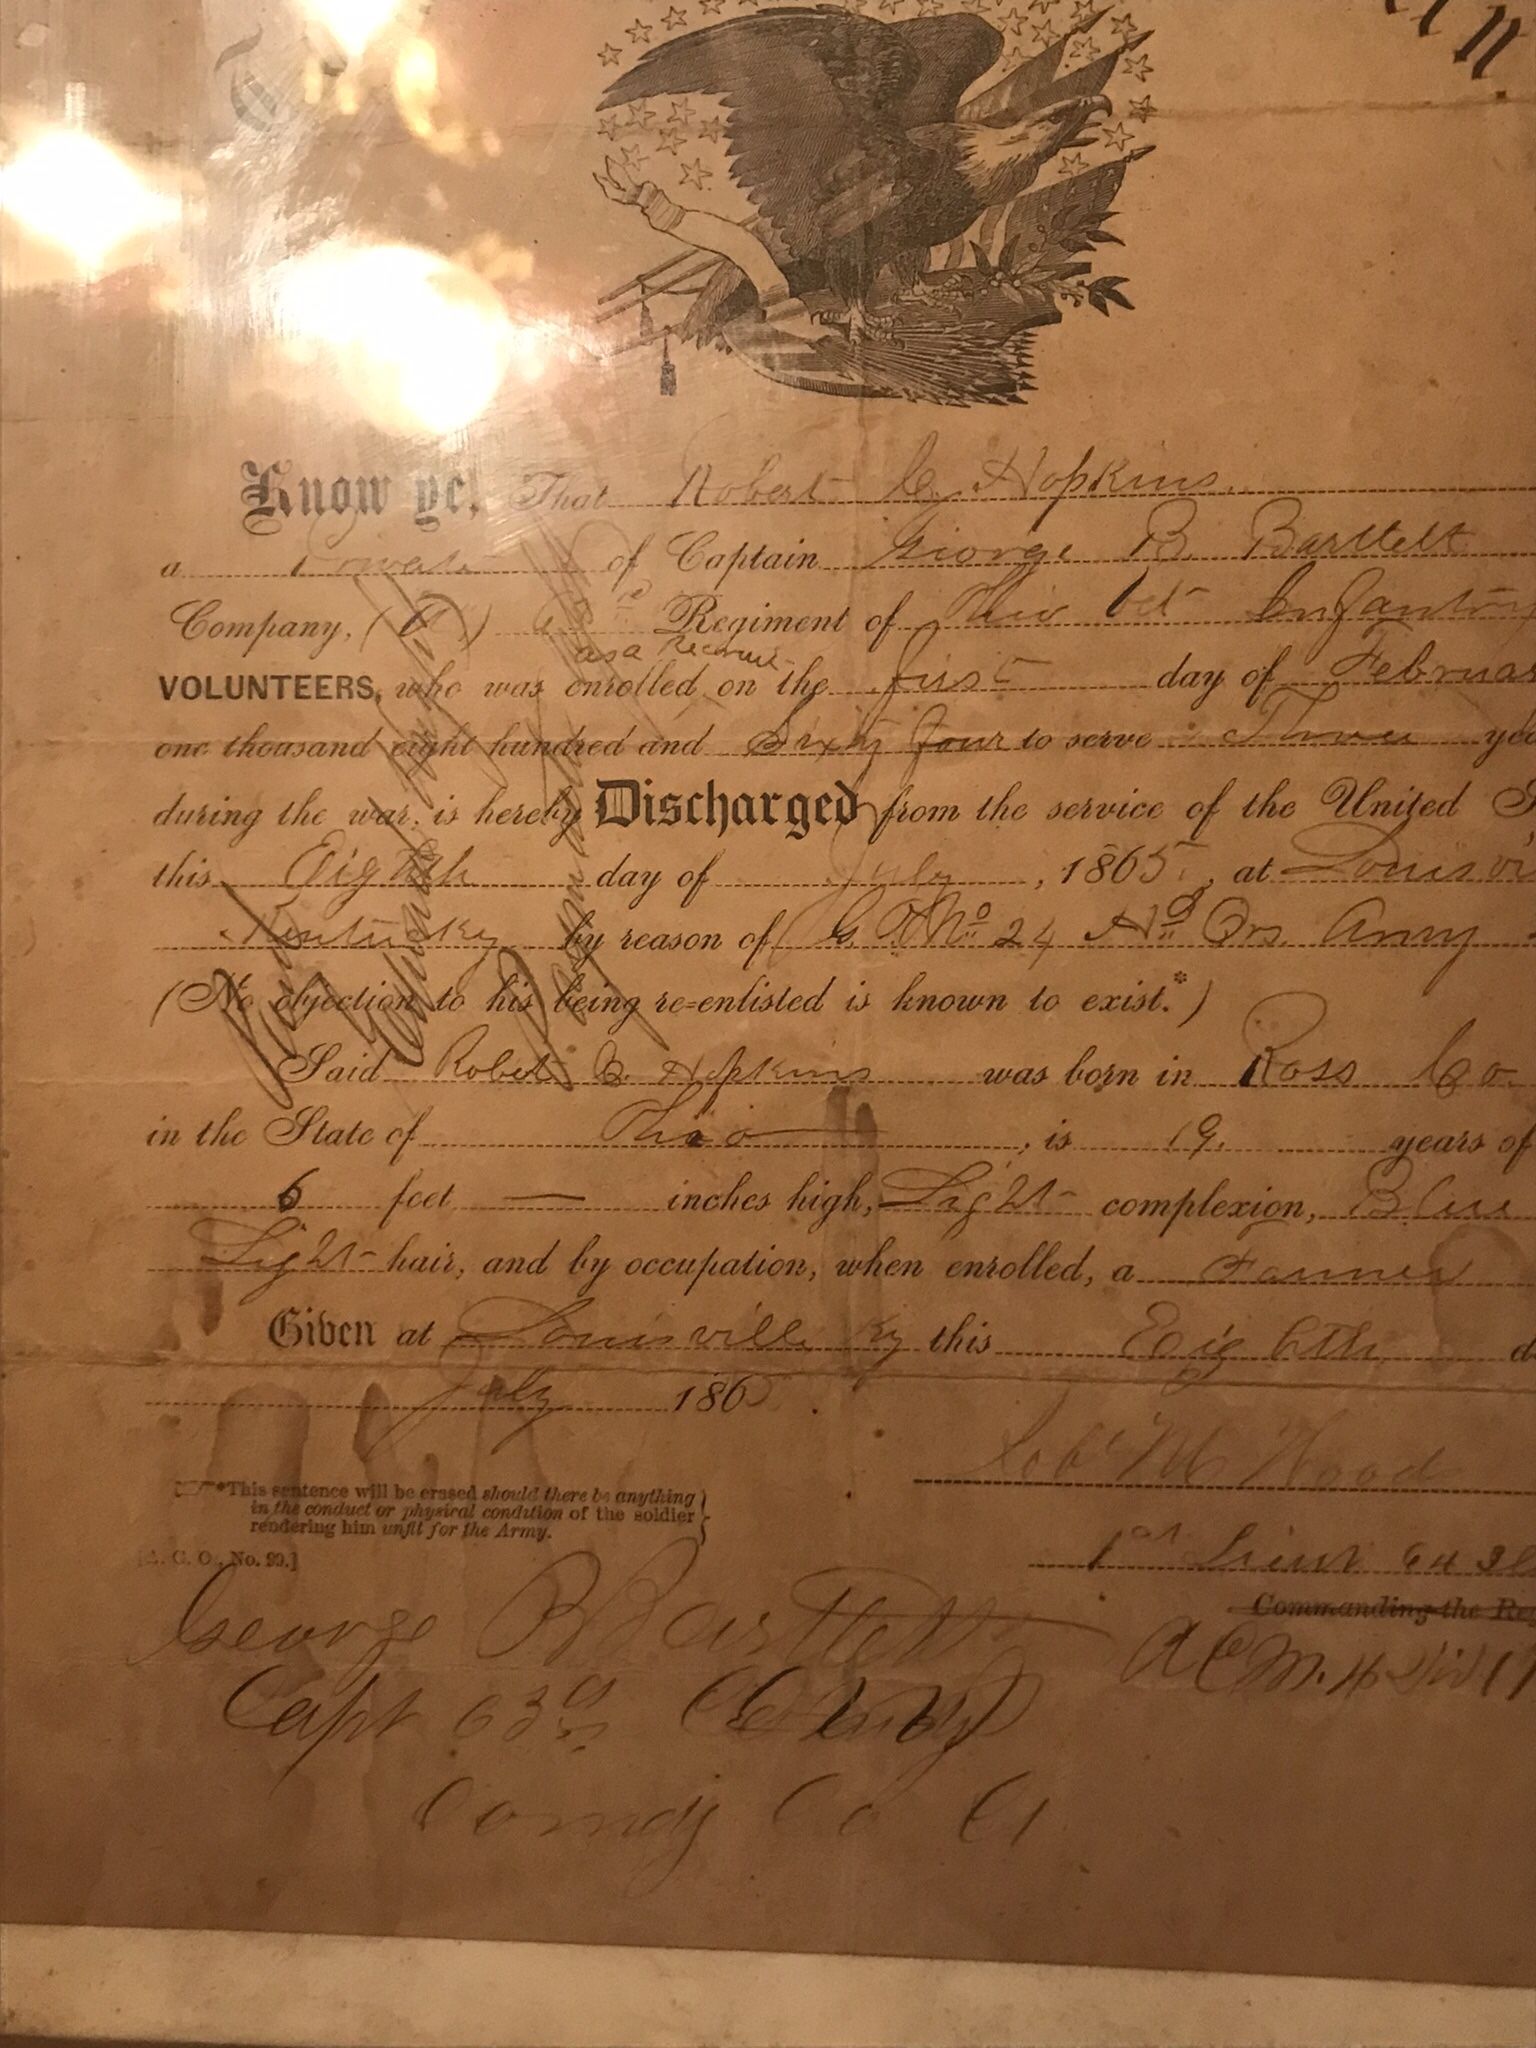 Know ye, That Robert C. Hopkins
a Private of Captain George B. Bartlett
Company, (A) 63rd Regiment of Ohio Vet Infantry
as a Recruit
VOLUNTEERS, who was enrolled on the first day of Februar
one thousand eight hundred and Sixty four to serve Three yea
during the war, is hereby Discharged from the service of the United S
this Eighth day of July, 1865, at Louisvi
Kentucky by reason of G. O. No 24 Hd Qrs. Army
(No objection to his being re=enlisted is known to exist.*)
Said Robert C. Hopkins was born in Ross Co.
in the State of Ohio, is 19 years of
6 feet — inches high, Light complexion, Blue
Light hair, and by occupation, when enrolled, a Farmer
Given at Louisville Ky this Eighth d
July 1865.
Wood
*This sentence will be erased should there be anything
in the conduct or physical condition of the soldier
rendering him unfit for the Army.
[A. G. O., No. 99.]
1st Lieut 64
Commanding the Reg
A C M. 4 Div 17
George B Bartlett
Capt 63d
Comdg Co A
Paid